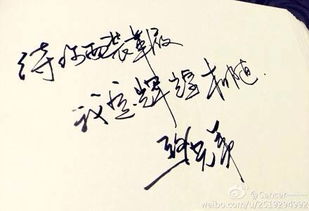 待你西装革履
我定辉煌相随.
@Cancer——
weibo.com/u/2519294992